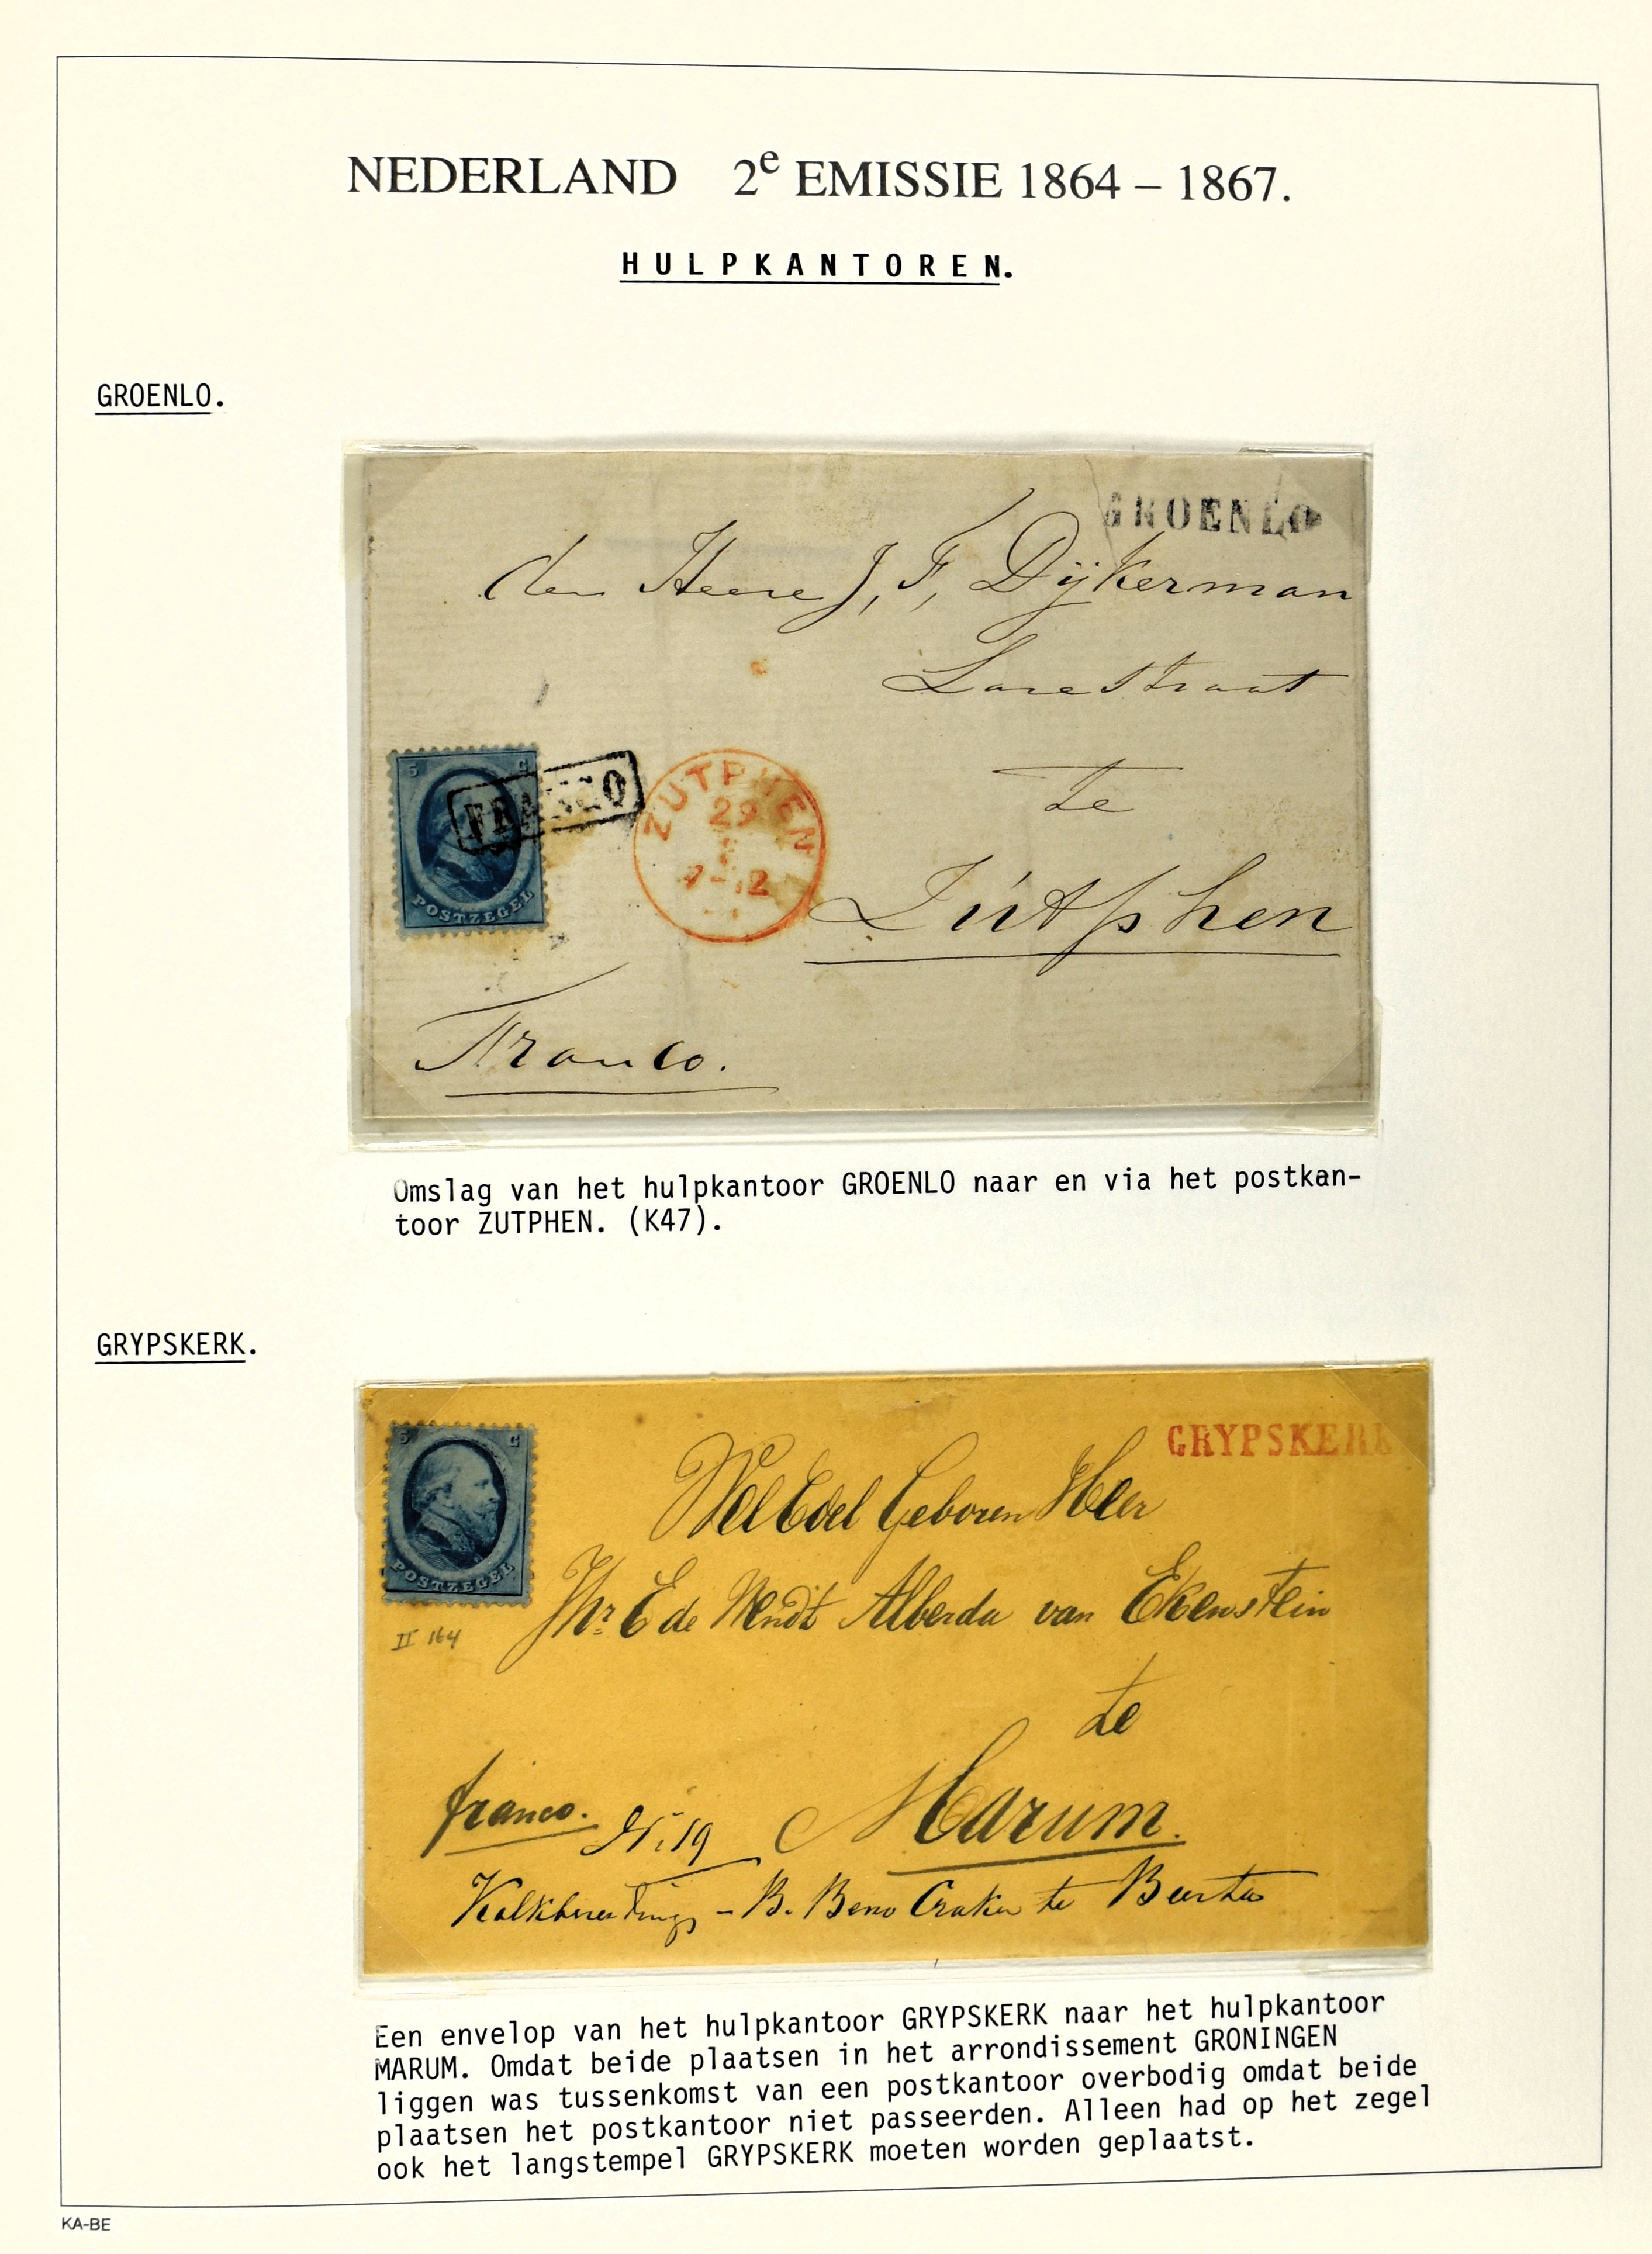 NEDERLAND 2e EMISSIE 1864 – 1867.
HULPKANTOREN.
GROENLO.
GROENLO
den Heere J, F, Dijkerman
Larestraat
5 C
FRANCO
ZUTPHEN
29
7-12
te
Zutphen
POSTZEGEL
Franco.
Omslag van het hulpkantoor GROENLO naar en via het postkan-
toor ZUTPHEN. (K47).
GRYPSKERK.
5 C
GRYPSKERK
WelEdel Geboren Heer
POSTZEGEL
Jhr E de Wendt Alberda van Ekenstein
II 164
te
franco.
N. 19
Marum.
Kalkbranding - B. Beno Craker te Beerta
Een envelop van het hulpkantoor GRYPSKERK naar het hulpkantoor
MARUM. Omdat beide plaatsen in het arrondissement GRONINGEN
liggen was tussenkomst van een postkantoor overbodig omdat beide
plaatsen het postkantoor niet passeerden. Alleen had op het zegel
ook het langstempel GRYPSKERK moeten worden geplaatst.
KA-BE